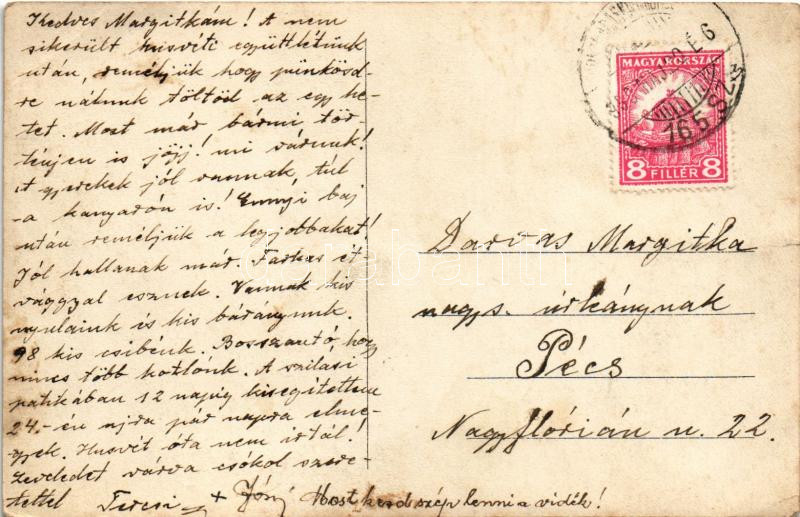 Kedves Margitkám! A nem
sikerült husvéti együttlétünk
után, reméljük hogy pünkösd-
re nálunk töltöd az egy he-
tet. Most már bármi tör-
ténjen is jöjj! mi várunk!
A gyerekek jól vannak, túl
a kanyarón is! Ennyi baj
után reméljük a legjobbakat!
Jól hallanak már. Farkas ét-
vággyal esznek. Vannak kis
nyulaink és kis báranyunk.
98 kis csibénk. Bosszantó, hogy
nincs több kotlónk. A szilasi
patikában 12 napig kisegítettem
24.-én ujra pár napra elme-
gyek. Husvét óta nem irtál!
Leveledet várva csókol szere-
tettel Tercsi + Jóny Most kezd szép lenni a vidék!
MAGYARORSZÁG
165
8 FILLÉR 8
Darvas Margitka
nagys. úrleánynak
Pécs
Nagyflórián u. 22.